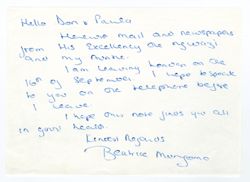 Hello Don & Paula
Herewith mail and newspapers
from His Excellency the Ngwazi
and my Auntie.
I am leaving London on the
16th of September. I hope to speak
to you on the telephone before
I leave.
I hope this note finds you all
in good health.
Kindest Regards
Beatrice